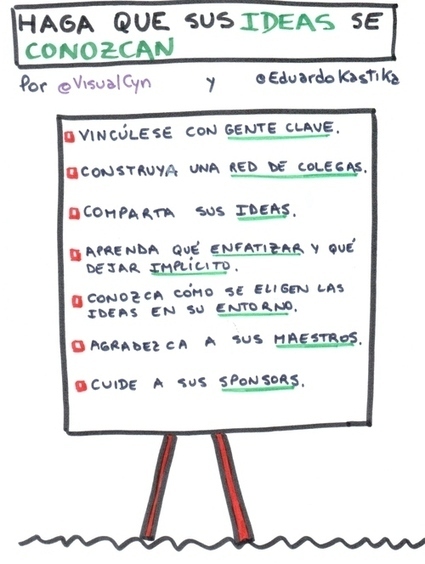 HAGA QUE SUS IDEAS SE
CONOZCAN
Por @VisualCyn y @EduardoKastika
VINCÚLESE CON GENTE CLAVE.
CONSTRUYA UNA RED DE COLEGAS.
COMPARTA SUS IDEAS.
APRENDA QUÉ ENFATIZAR Y QUÉ
DEJAR IMPLÍCITO.
CONOZCA CÓMO SE ELIGEN LAS
IDEAS EN SU ENTORNO.
AGRADEZCA A SUS MAESTROS.
CUIDE A SUS SPONSORS.